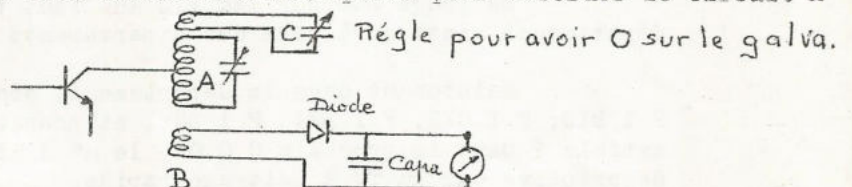 C Régle pour avoir 0 sur le galva.
A
Diode
Capa
B